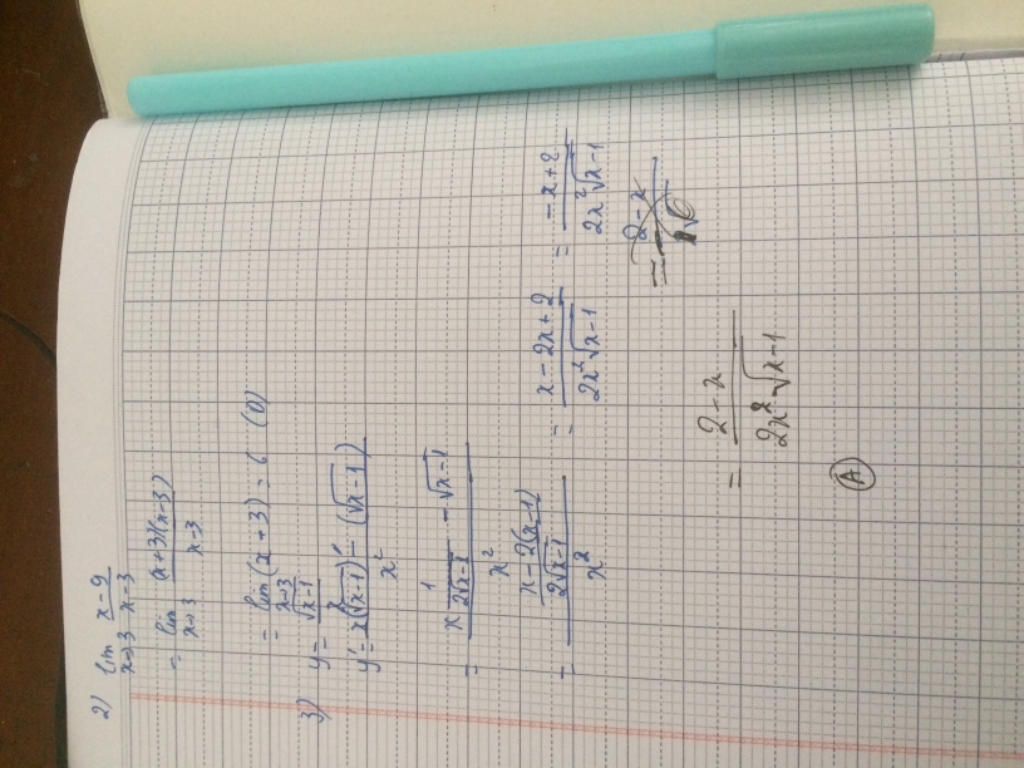 2) lim x→3 (x-9)/(x-3)
= lim x→3 (x+3)(x-3)/(x-3)
= lim x→3 (x+3) = 6 (D)
3) y = √(x-1)/x
y' = (x(√(x-1))' - (√(x-1)))/x²
= (x 1/(2√(x-1)) - √(x-1))/x²
= ((x-2(x-1))/(2√(x-1)))/x² = (x-2x+2)/(2x²√(x-1)) = (-x+2)/(2x²√(x-1))
= (2-x)/(2x²√(x-1))
(A)